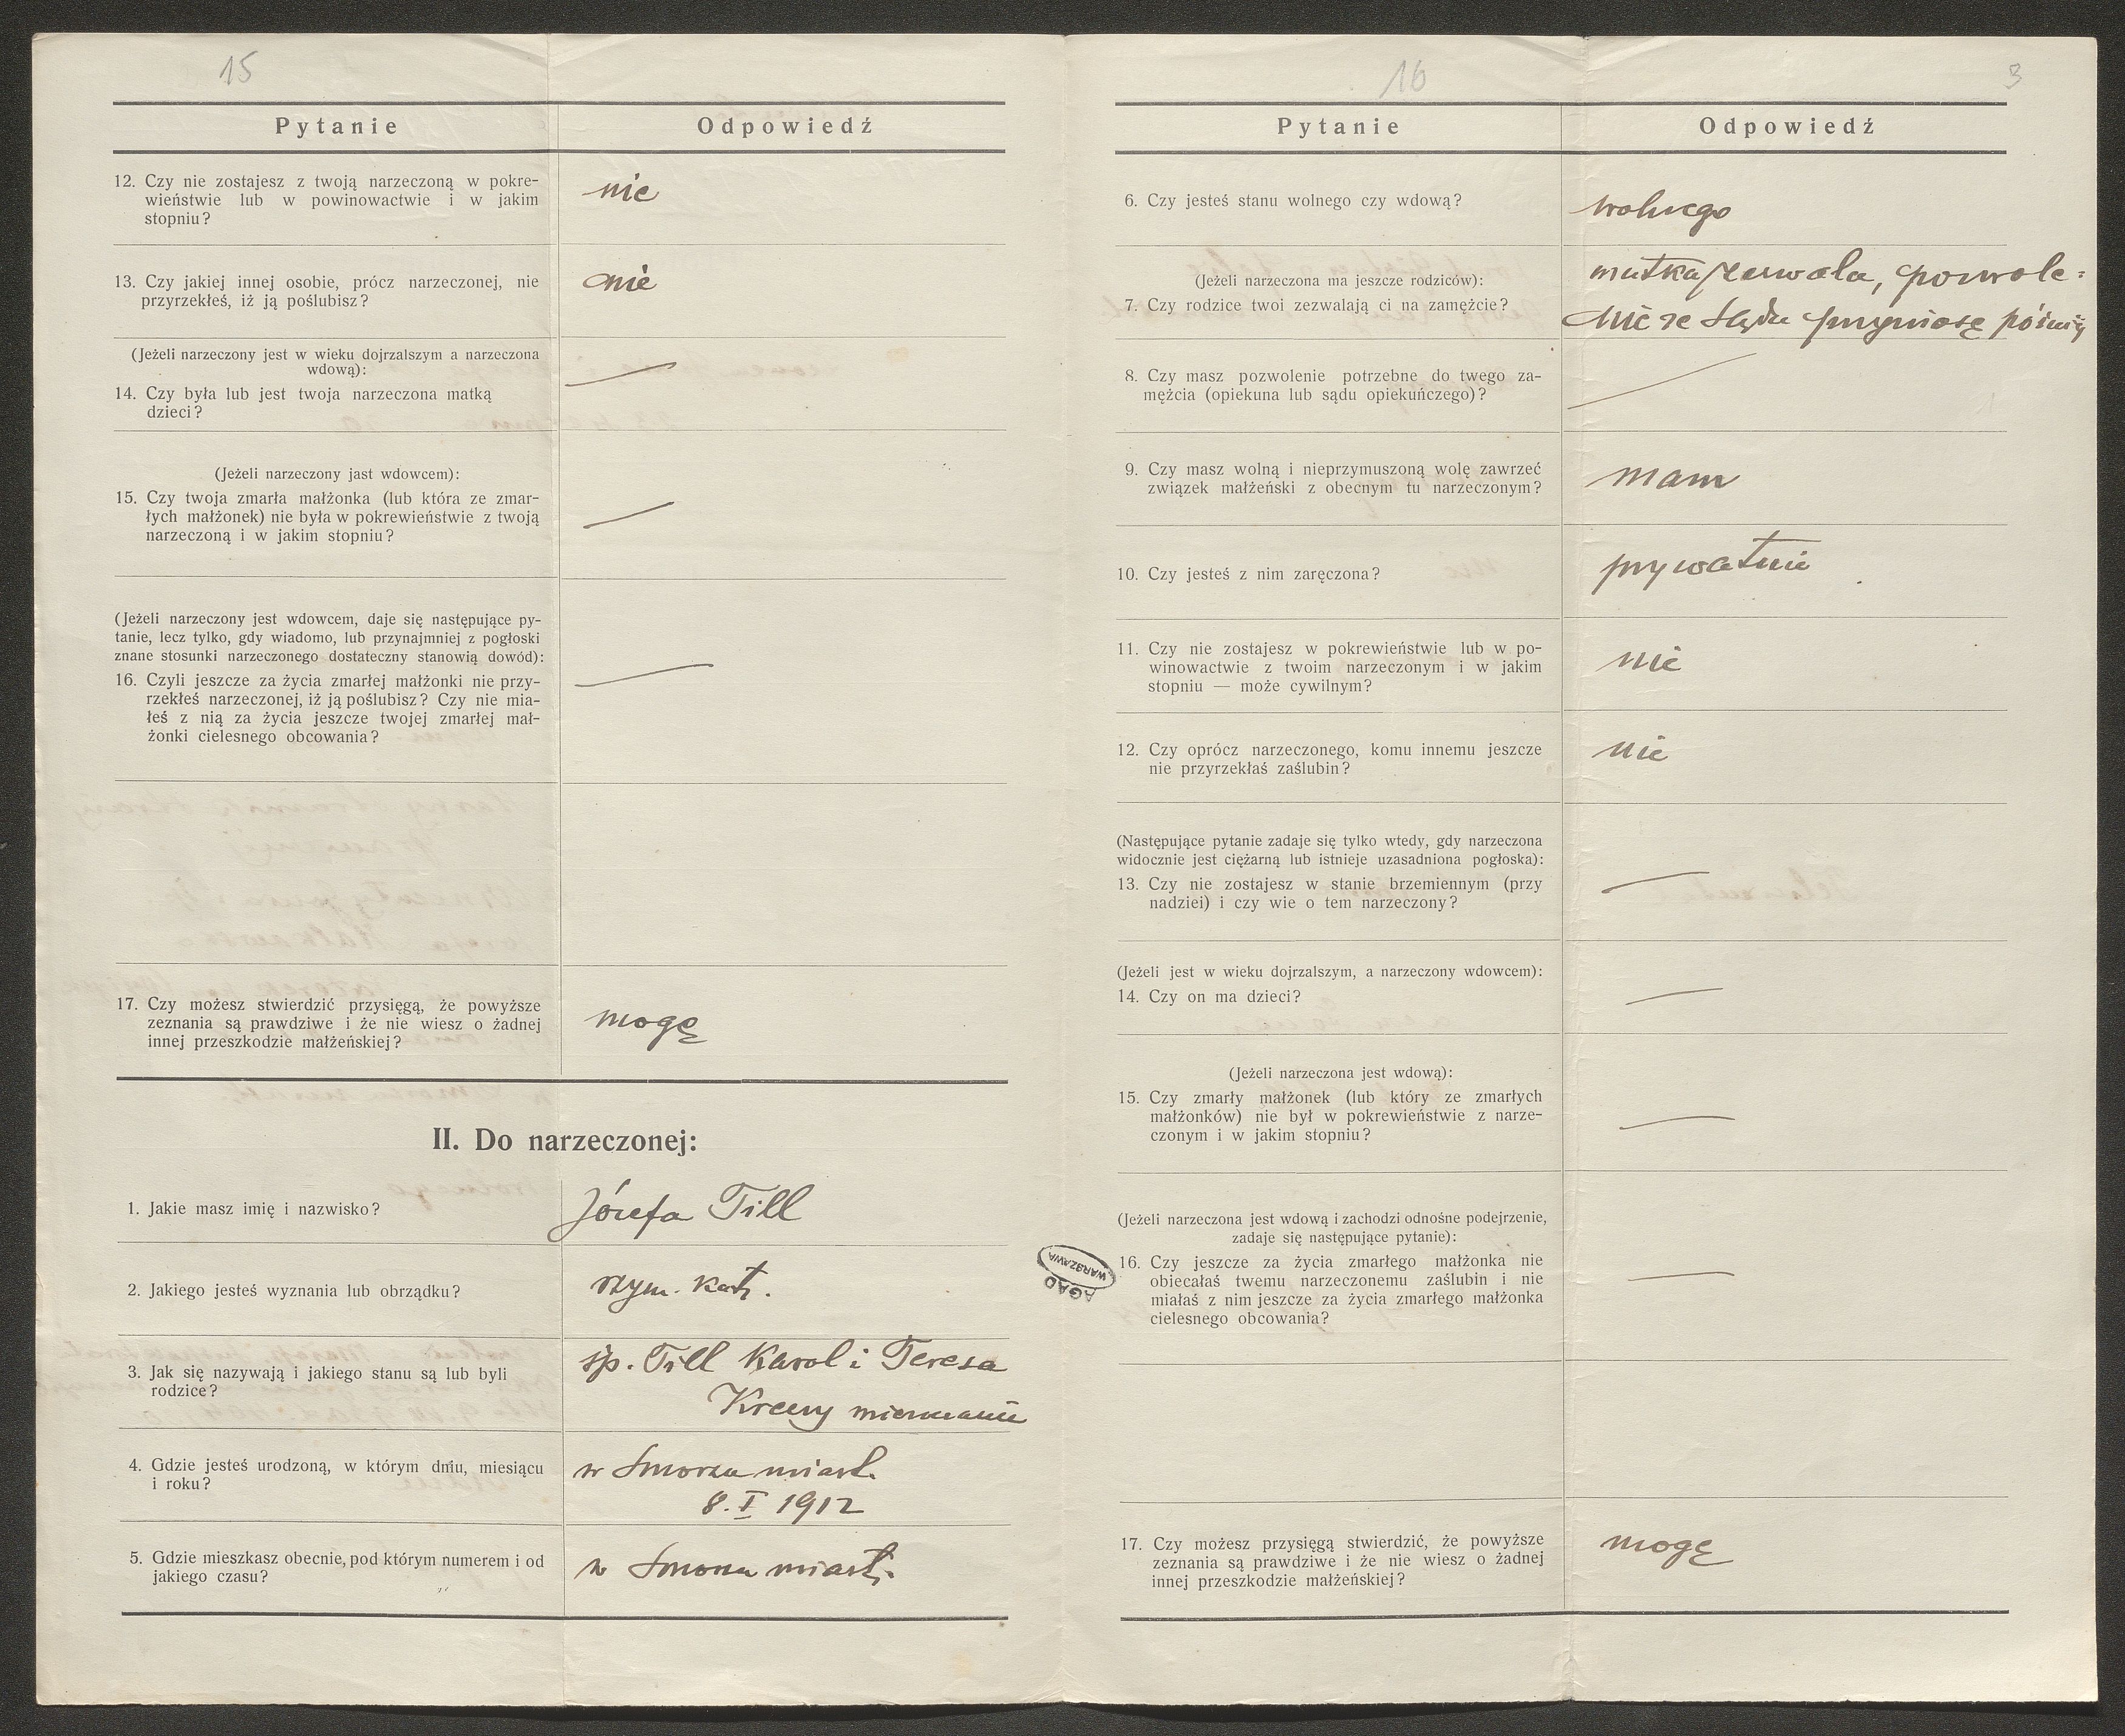 15
Pytanie
Odpowiedź
12. Czy nie zostajesz z twoją narzeczoną w pokre-
wieństwie lub w powinowactwie i w jakim
stopniu?
nie
13. Czy jakiej innej osobie, prócz narzeczonej, nie
przyrzekłeś, iż ją poślubisz?
nie
(Jeżeli narzeczony jest w wieku dojrzalszym a narzeczona
wdową):
14. Czy była lub jest twoja narzeczona matką
dzieci?
—
(Jeżeli narzeczony jast wdowcem):
15. Czy twoja zmarła małżonka (lub która ze zmar-
łych małżonek) nie była w pokrewieństwie z twoją
narzeczoną i w jakim stopniu?
—
(Jeżeli narzeczony jest wdowcem, daje się następujące py-
tanie, lecz tylko, gdy wiadomo, lub przynajmniej z pogłoski
znane stosunki narzeczonego dostateczny stanowią dowód):
16. Czyli jeszcze za życia zmarłej małżonki nie przy-
rzekłeś narzeczonej, iż ją poślubisz? Czy nie mia-
łeś z nią za życia jeszcze twojej zmarłej mał-
żonki cielesnego obcowania?
—
17. Czy możesz stwierdzić przysięgą, że powyższe
zeznania są prawdziwe i że nie wiesz o żadnej
innej przeszkodzie małżeńskiej?
mogę
II. Do narzeczonej:
1. Jakie masz imię i nazwisko?
Józefa Till
2. Jakiego jesteś wyznania lub obrządku?
rzym. kat.
3. Jak się nazywają i jakiego stanu są lub byli
rodzice?
śp. Till Karol i Teresa
4. Gdzie jesteś urodzona, w którym dniu, miesiącu
i roku?
w Smorzu miast.
8. I 1912
5. Gdzie mieszkasz obecnie, pod którym numerem i od
jakiego czasu?
w Smorzu miast.
16
3
Pytanie
Odpowiedź
6. Czy jesteś stanu wolnego czy wdową?
wolnego
(Jeżeli narzeczona ma jeszcze rodziców):
7. Czy rodzice twoi zezwalają ci na zamężcie?
matka zezwala, pozwole=
nie ze Sądu przyniosę później
8. Czy masz pozwolenie potrzebne do twego za-
mężcia (opiekuna lub sądu opiekuńczego)?
—
9. Czy masz wolną i nieprzymuszoną wolę zawrzeć
związek małżeński z obecnym tu narzeczonym?
mam
10. Czy jesteś z nim zaręczona?
prywatnie
11. Czy nie zostajesz w pokrewieństwie lub w po-
winowactwie z twoim narzeczonym i w jakim
stopniu — może cywilnym?
nie
12. Czy oprócz narzeczonego, komu innemu jeszcze
nie przyrzekłaś zaślubin?
nie
(Następujące pytanie zadaje się tylko wtedy, gdy narzeczona
widocznie jest ciężarną lub istnieje uzasadniona pogłoska):
13. Czy nie zostajesz w stanie brzemiennym (przy
nadziei) i czy wie o tem narzeczony?
—
(Jeżeli jest w wieku dojrzalszym, a narzeczony wdowcem):
14. Czy on ma dzieci?
—
(Jeżeli narzeczona jest wdową):
15. Czy zmarły małżonek (lub który ze zmarłych
małżonków) nie był w pokrewieństwie z narze-
czonym i w jakim stopniu?
—
(Jeżeli narzeczona jest wdową i zachodzi odnośne podejrzenie,
zadaje się następujące pytanie):
16. Czy jeszcze za życia zmarłego małżonka nie
obiecałaś twemu narzeczonemu zaślubin i nie
miałaś z nim jeszcze za życia zmarłego małżonka
cielesnego obcowania?
—
AGAD
WARSZAWA
17. Czy możesz przysięgą stwierdzić, że powyższe
zeznania są prawdziwe i że nie wiesz o żadnej
innej przeszkodzie małżeńskiej?
mogę